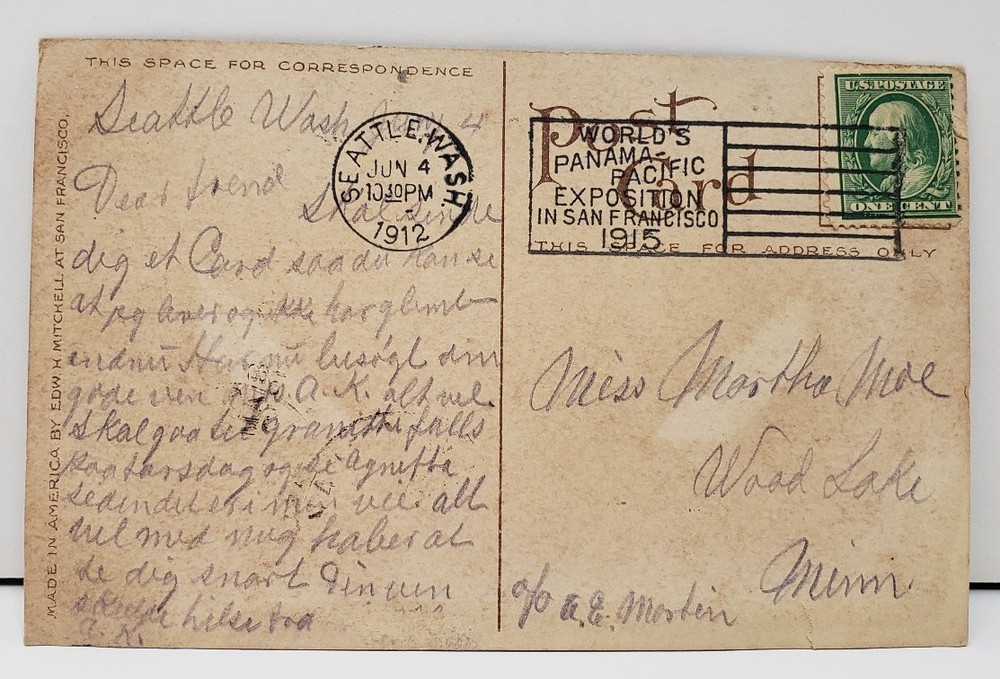 THIS SPACE FOR CORRESPONDENCE
Seattle Wash 4
Dear frend
Skal sende
dig et Card saa du kan se
at jeg lever og ikke har glemt
endnu Har nu besøgt din
gode ven A.K. alt vel.
skal gaa til granithe falls
paa torsdag og se Agnetta
min vei. alt
vel med mig haaber at
se dig snart Din ven
hilse
MADE IN AMERICA BY EDW. H. MITCHELL AT SAN FRANCISCO.
SEATTLE, WASH.
JUN 4
10 30 PM
1912
Post Card
WORLD'S
PANAMA-
PACIFIC
EXPOSITION
IN SAN FRANCISCO
1915
THIS SPACE FOR ADDRESS ONLY
U.S. POSTAGE
ONE CENT
Miss Martha Moe
Wood Lake
Minn.
c/o A.E. Mortin